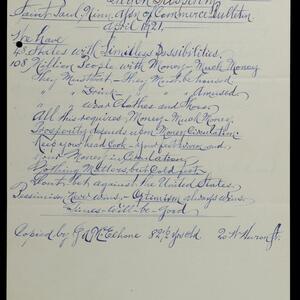 Saint Paul Minn. Assn of Commerce Bulletin
April 1921.
We Have
48 States with Limitless Possibilities.
108 Million People with Money - Much Money
They Must eat - They Must be housed
" Drink - " " Amused
" wear Clothes and Shoes
All this requires Money - Much Money.
Prosperity depends upon Money Circulation.
Keep your head Cool - your feet warm and
your Money in Circulation
Nothing Matters, but Cold feet.
Don't bet against the United States.
Pessimism Never wins - Optimism always wins.
Times - will - be - Good
Copied by G W McElhone 82½ yrs old 20 N Huron St.